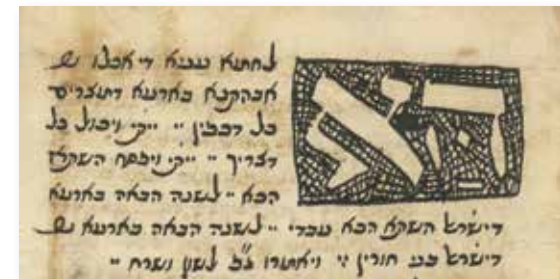 הא
לחמא עניא די אכלו
אבהתנא בארעא דמצרים
כל דכפין ייתי וייכול כל
דצריך ייתי ויפסח השתא
הכא לשנה הבאה בארעא
דישראל השתא הכא עבדי לשנה הבאה בארעא
דישראל בני חורין ויאמרו ג״כ לשון